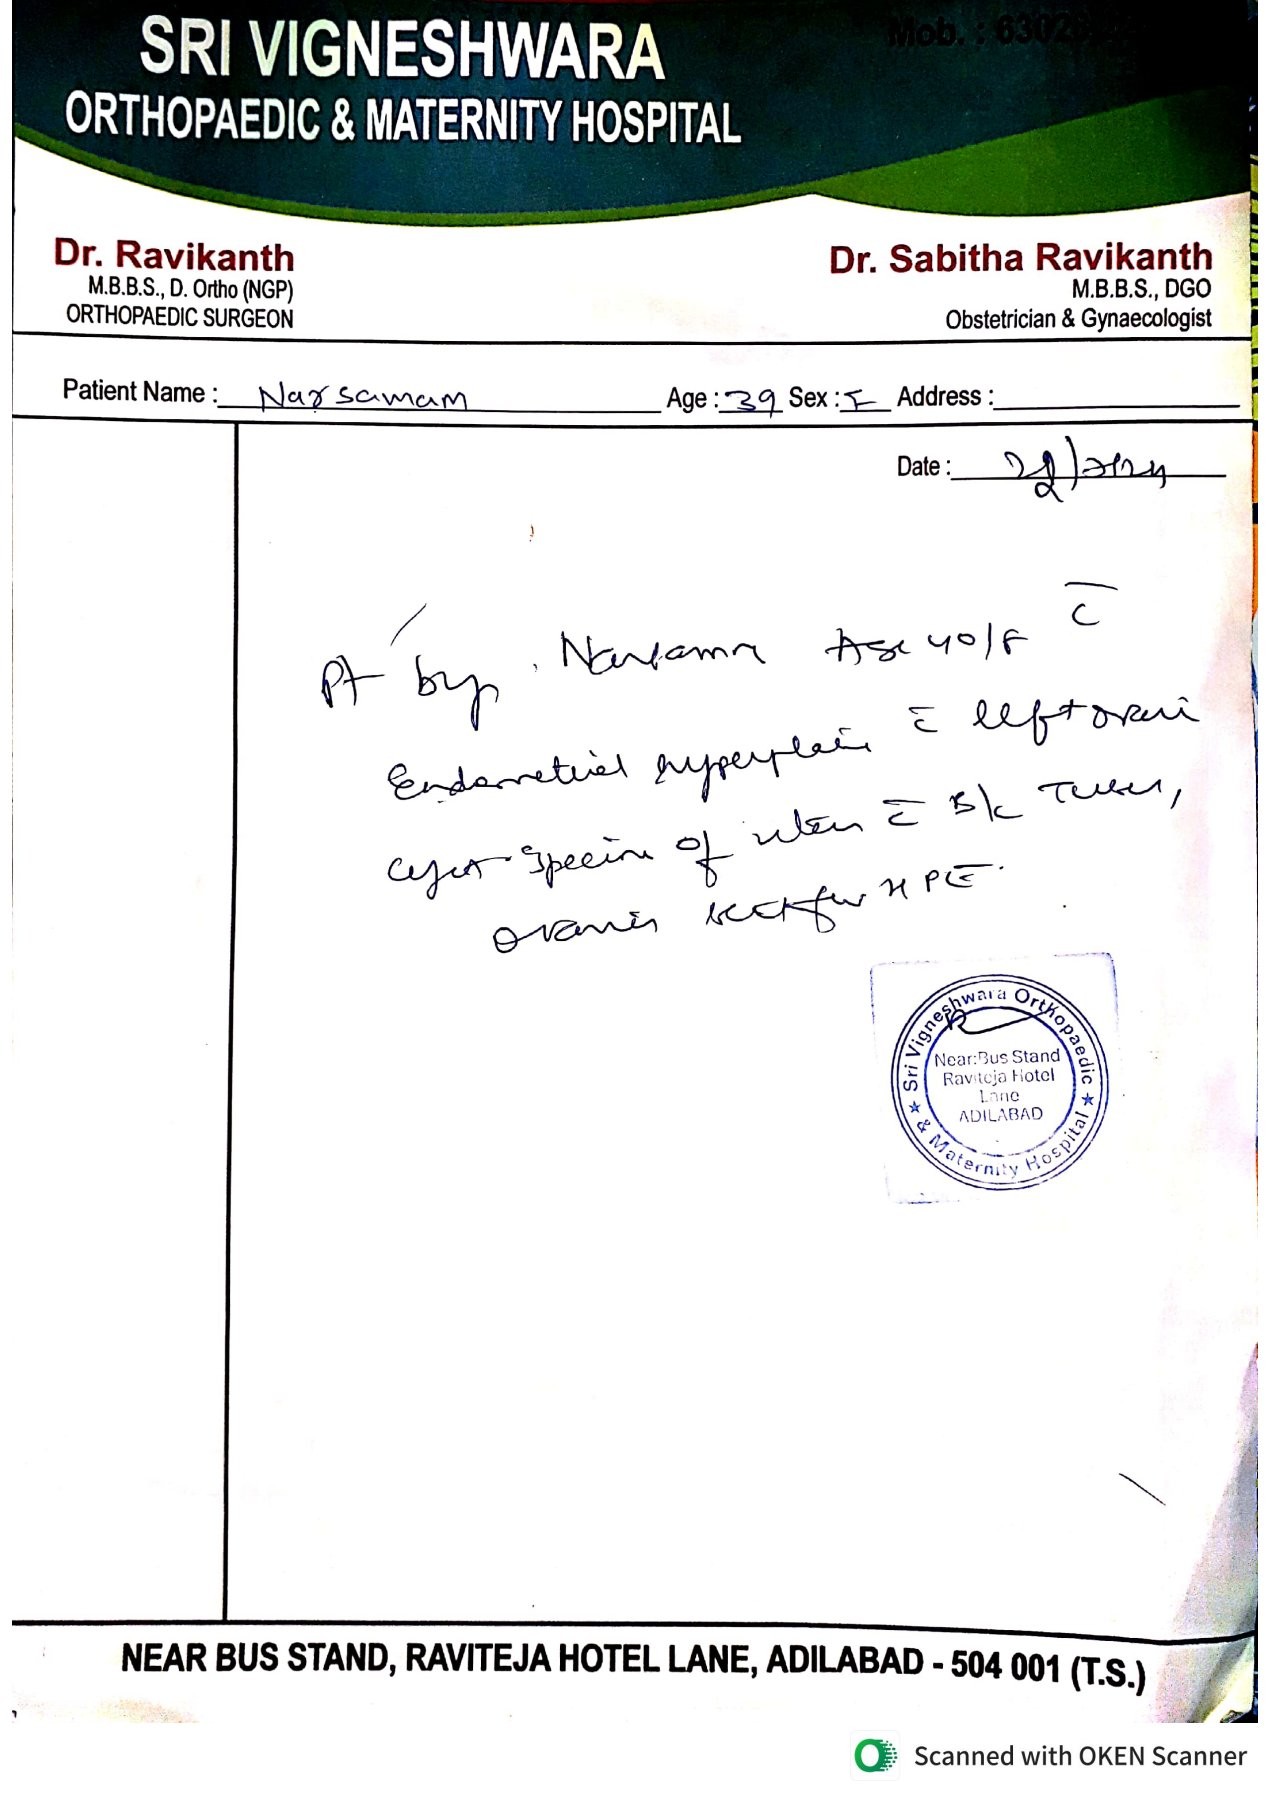 Mob. : 6302
SRI VIGNESHWARA
ORTHOPAEDIC & MATERNITY HOSPITAL
Dr. Ravikanth
M.B.B.S., D. Ortho (NGP)
ORTHOPAEDIC SURGEON
Dr. Sabitha Ravikanth
M.B.B.S., DGO
Obstetrician & Gynaecologist
Patient Name : Narsamam Age : 39 Sex : F Address :
Date :
Pt Age 40/F c̄
Endometrial c̄ left
of c̄ B/L
for HPE.
Sri Vigneshwara Orthopaedic
& Maternity Hospital
Near:Bus Stand
Raviteja Hotel
Lane
ADILABAD
NEAR BUS STAND, RAVITEJA HOTEL LANE, ADILABAD - 504 001 (T.S.)
Scanned with OKEN Scanner